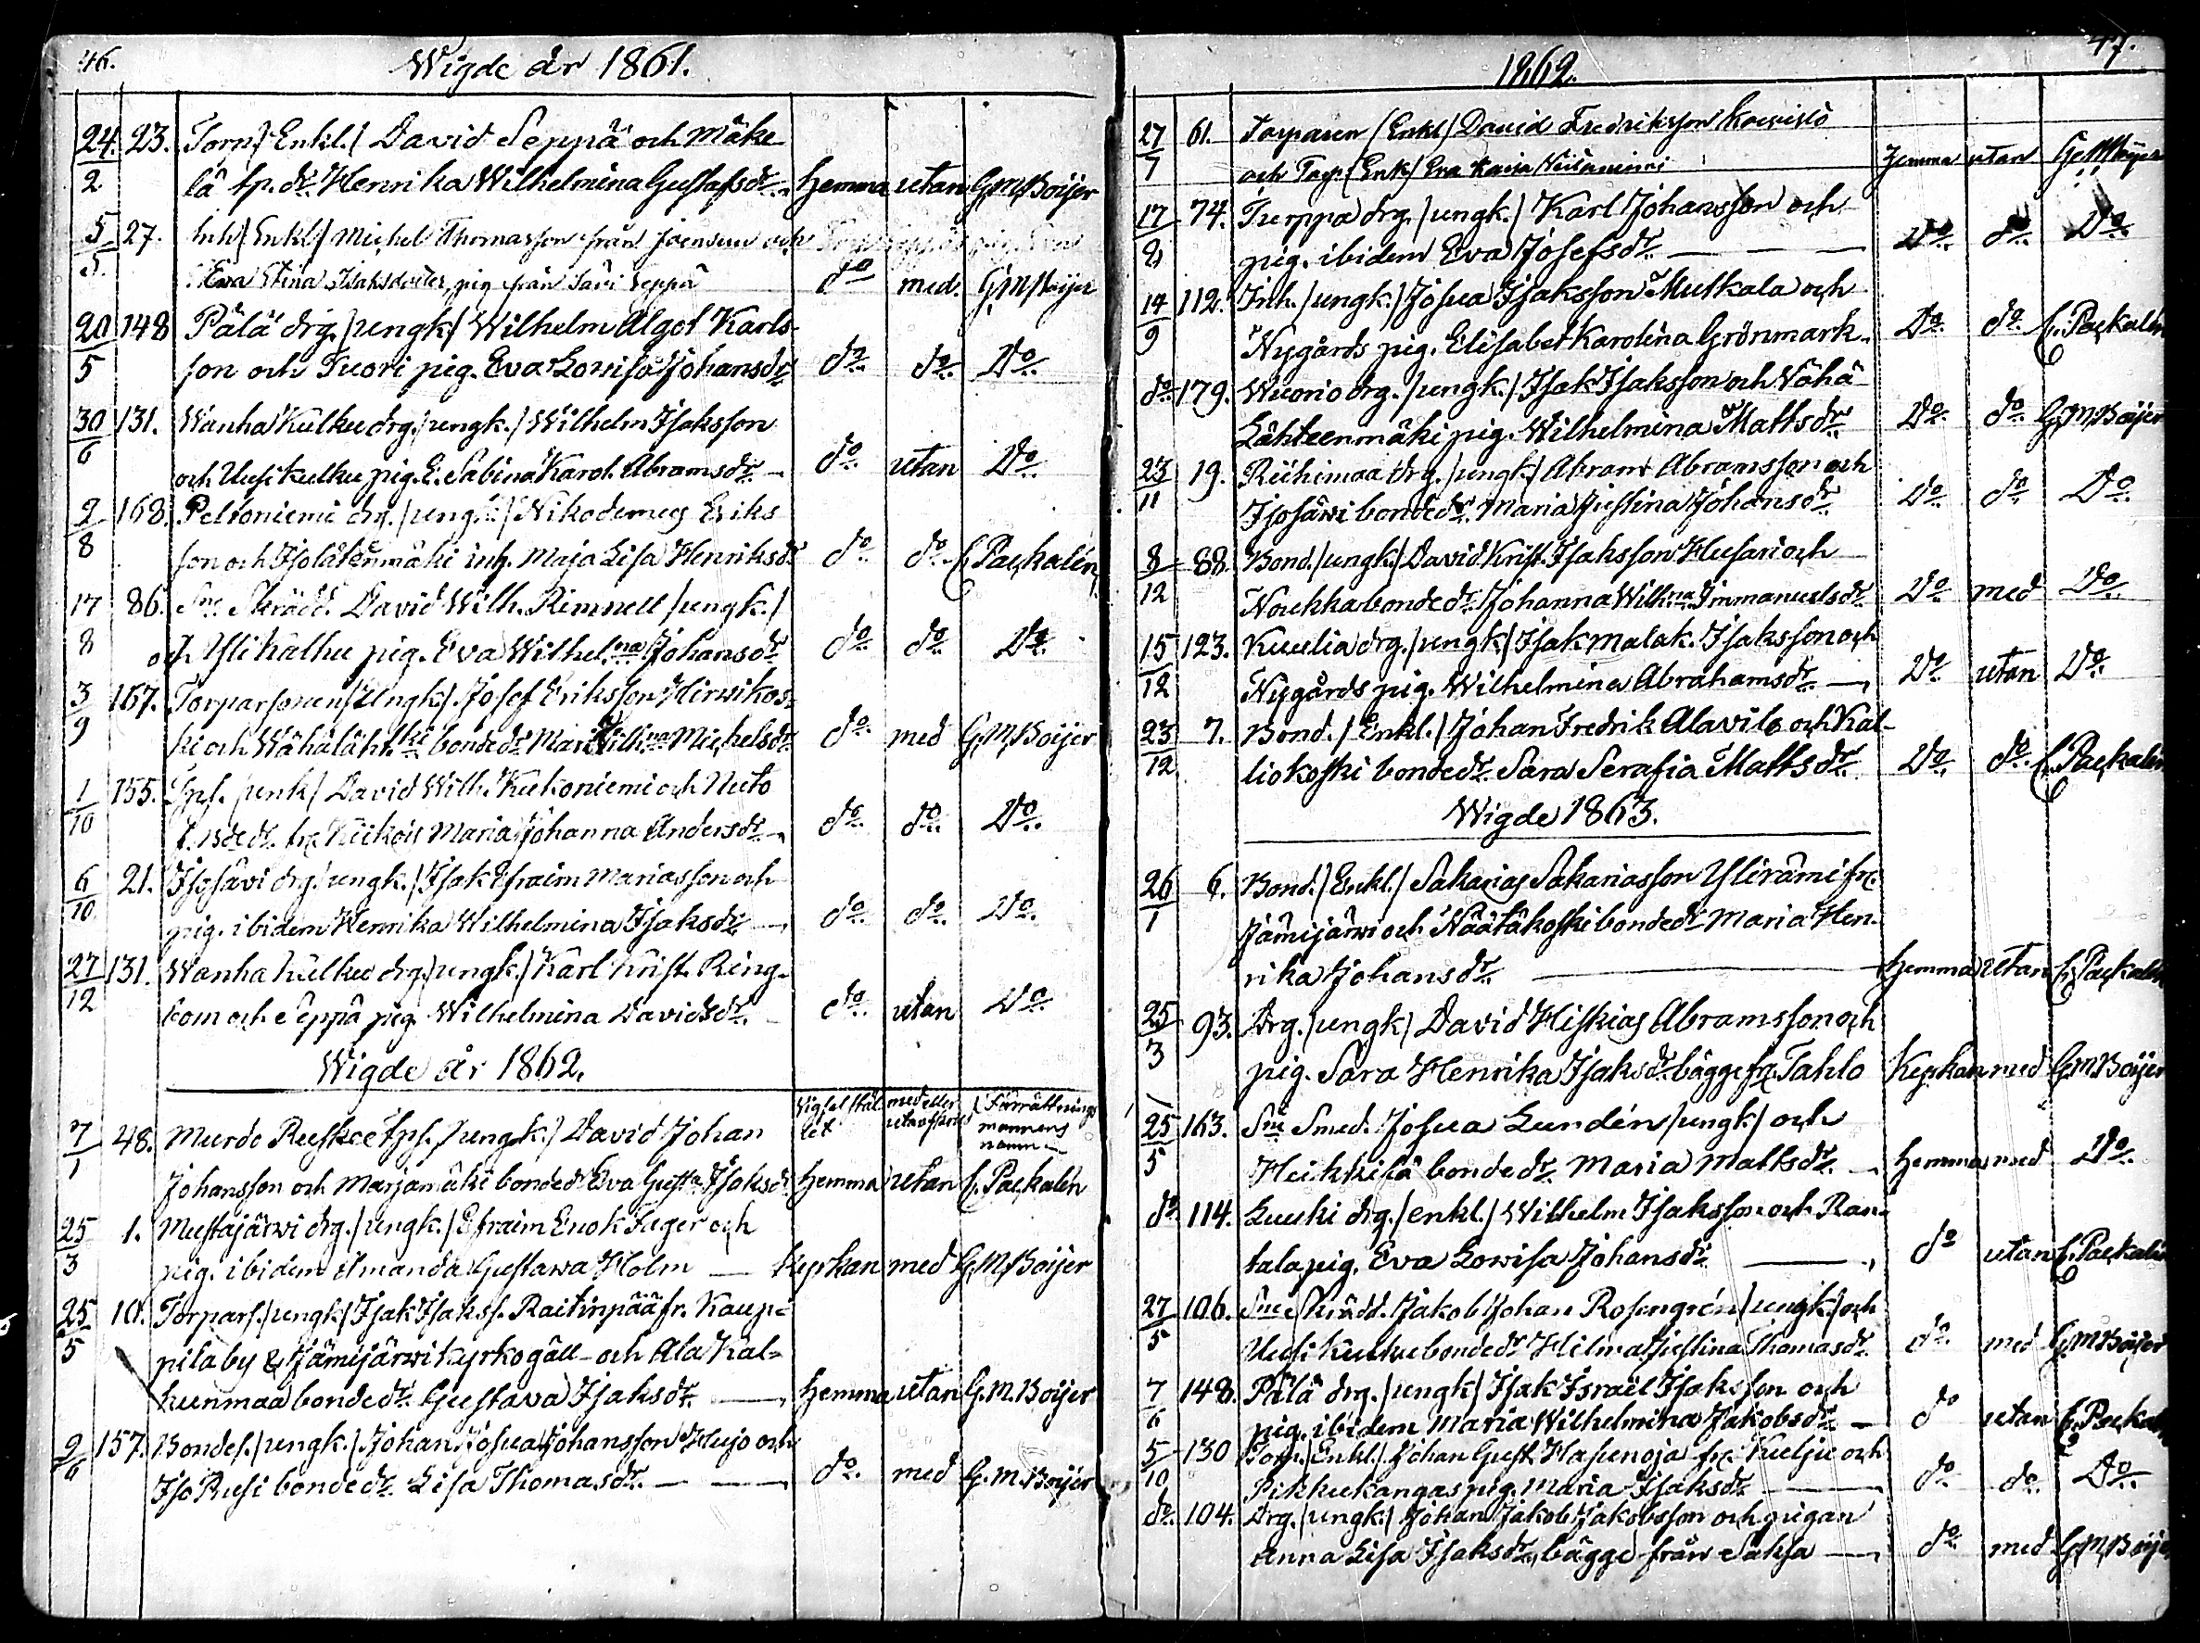 46.
Wigde år 1861.
24. 23. Torp. / Enkl. / David Seppä och Mäke
2 lä tp. dr. Henrika Wilhelmina Gustafsdr. hemma utan G.M. Boijer
5 27. Inh / Enkl / Michel Thomasson från Joensuu och
5. Eva Stina Isaksdotter, pig från Savi Seppä do med. G.M. Boijer
20 148 Pälä drg. / ungk / Wilhelm Algot Karls-
5 son och Tuori pig. Eva Lovisa Johansdr do do Do
30 131. Wanha Kulku drg. / ungk. / Wilhelm Isaksson
6 och Uusi kulku pig. E. Sabina Karol. Abramsdr. do utan Do
2 168. Peltoniemi drg. / ungk / Nikodemus Eriks
8 son och Isolåtenmäki inh. Maja Lisa Henriksdr do do C. Packalén
17 86. Sne Skrädd. David Wilh. Rimnell / ungk. /
8 och Yli Kalhu pig. Eva Wilhelmna Johansdr do do Do
3 167. Torparsonen / Ungk /. Josef Eriksson Hirvikos-
9 ki och Wähälähtki bondedr Mari Wilhna Michelsdr do med G.M. Boijer
1 155. Tps. / unk / David Wilh. Kukoniemi och Uuto
10 Maria Johanna Andersdr do do Do
6 21. Isosävi drg. / ungk. / Isak Efraim Mariasson och
10 pig. ibidem Henrika Wilhelmina Isaksdr do do Do
27 131. Wanha Kulku drg. / ungk. / Karl Krist. Ring-
12 bom och Seppä pig. Wilhelmina Davidsdr. do utan Do
Wigde år 1862.
Vigsel stäl let med eller utan Förrättnings mannens namn
7 48. Murdo Ruskee Tps. / ungk. / David Johan
1 Johansson och Marjamäki bondedr Eva Gusta Isaksdr hemma utan C. Packalén
25 1. Mustajärwi drg. / ungk. / Efraim Enok Fager och
3 pig. ibidem Amanda Gustawa Holm kyrkan med G.M. Boijer
25 10. Torpars. / ungk / Isak Isakss. Raitinpää fr. Kaup-
5 pila by & Jämijärwi kyrkogäll och Ala Kal-
kunmaa bondedr. Gustava Isaksdr. hemma utan G.M. Boijer
9 157. Bondes. / ungk. / Johan Josua Johansson Hujo och
6 Iso Rusi bondedr. Lisa Thomasdr. do med G.M. Boijer
47.
1862.
27 61. Torparen / Enkl / David Fredriksson Koivisto
7 och Torp. / Enk / Eva Kaisa hemma utan G.M. Boijer
17 74. Turppa drg. / ungk. / Karl Johansson och
8 pig. ibidem Eva Josefsdr. Do do Do
14 112. Inh. / ungk. / Josua Isaksson Mutkala och
9 Nygårds pig. Elisabet Karolina Grönmark. Do do C. Packalén
do 179. Wuorio drg. / ungk. / Isak Isaksson och Vähä
Lähteenmäki pig. Wilhelmina Mattsdr Do do G.M. Boijer
23 19. Riihimaa drg. / ungk / Abram Abramsson och
11 Isosäwi bondedr. Maria Justina Johansdr Do do Do
8 88. Bond. / ungk. / David Krist. Isaksson Husari och
12 Noukka bondedr. Johanna Wilhna Immanuelsdr Do med Do
15 123. Kuulia drg. / ungk / Isak Malak. Isaksson och
12 Nygårds pig. Wilhelmina Abrahamsdr. Do utan Do
23 7. Bond. / Enkl. / Johan Fredrik Alavile och Kal-
12 liokoski bondedr. Sara Serafia Mattsdr. Do do C. Packalén
Wigde 1863.
26 6. Bond. / Enkl. / Sakarias Sakariasson Ylirämi fr.
1 Jämijärwi och Näätäkoski bondedr Maria Hen-
rika Johansdr. hemma utan C. Packalén
25 93. Drg. / ungk / David Hiskias Abramsson och
3 pig. Sara Henrika Isaksdr. bägge fr. Tahlo Kyrkan med G.M. Boijer
25 163. Sne Smed. Josua Lundén / ungk / och
5 Heikkilä bondedr. Maria Mattsdr. hemma med Do
do 114. Luuki drg. / enkl. / Wilhelm Isaksson och Ran-
tala pig. Eva Lovisa Johansdr do utan C. Packalén
27 106. Sne Skrädd. Jakob Johan Rosengrén / ungk / och
5 Uusi kulku bondedr Hilma Justina Thomasdr. do med G.M. Boijer
7 148. Pälä drg. / ungk / Isak Israel Isaksson och
6 pig. ibidem Maria Wilhelmina Jakobsdr. do utan C. Packalén
5 130 Torp. / Enkl. / Johan Gust. Hasunoja fr. Kulju och
10 Pikkukangas pig. Maria Isaksdr do do Do
do. 104. Drg. / ungk. / Johan Jakob Jakobsson och pigan
Anna Lisa Isaksdr, bägge från Saksa do med G.M. Boijer